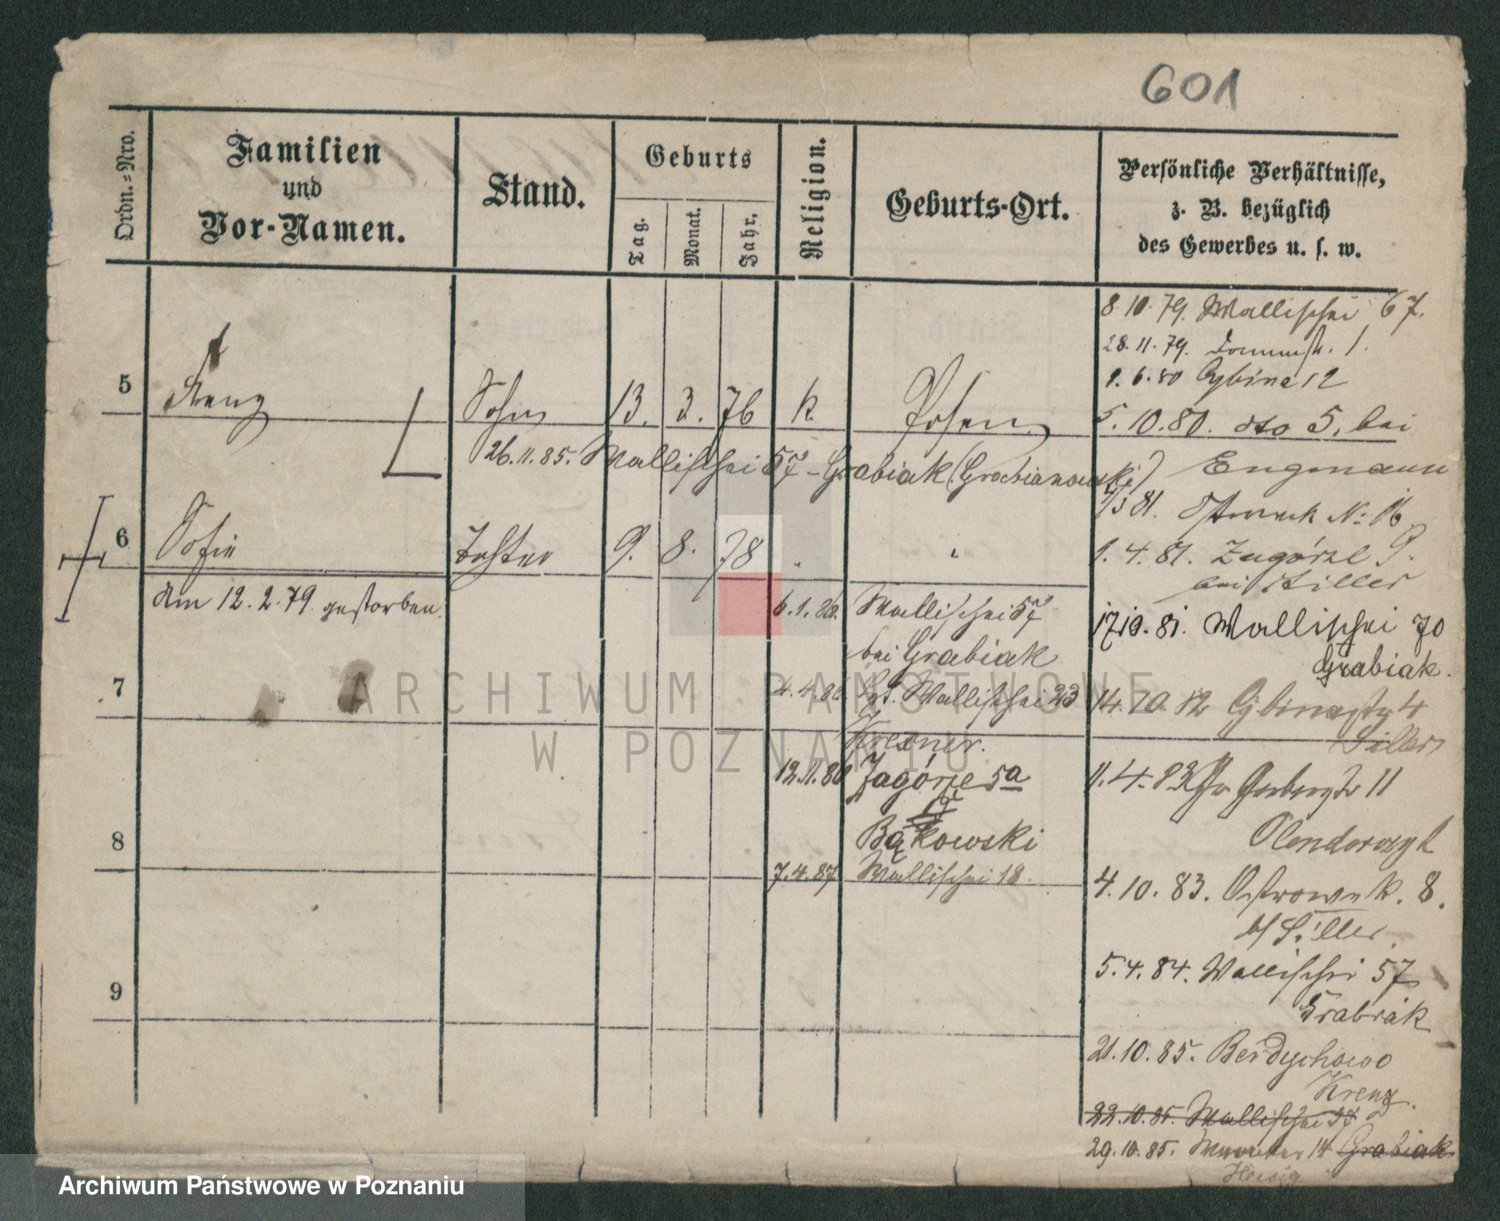 601
Ordn.-Nro.
Familien
und
Vor-Namen.
Stand.
Geburts
Tag.
Monat.
Jahr,
Religion.
Geburts-Ort.
Persönliche Verhältnisse,
z. B. bezüglich
des Gewerbes u. s. w.
8.10.79. Wallischei 67.
28.11.79. 1.
1.6.80 Cybina 12
5 Sohn 13. 3. 76 k. Posen
5.10.80. dto 5, bei
Engmann
26.11.85. Wallischei 57 - Grabiak (Grabianowski)
81. Ostrowek No 16
6 Sofie Tochter 9. 8. 78
1.4.81. Zagórze 9.
bei Siller
am 12.2.79 gestorben.
6.1.86. Wallischei 57
bei Grabiak
17.10.81. Wallischei 70
Grabiak.
7
4.4.86. Wallischei 23
Krexner.
14.10.82 Cybinastr 4
Siller
12.11.86 Zagórze 5a
Bąkowski
11.4.83 Gr Gerberstr 11
Olenderczyk
8
7.4.87 Wallischei 18.
4.10.83. Ostrowek. 8.
b/ Siller.
5.4.84. Wallischei 57
Grabiak
9
21.10.85. Berdychowo
Krenz.
22.10.85. Wallischei 57
29.10.85. 14 Grabiak
Herzig
ARCHIWUM PAŃSTWOWE
W POZNANIU
Archiwum Państwowe w Poznaniu